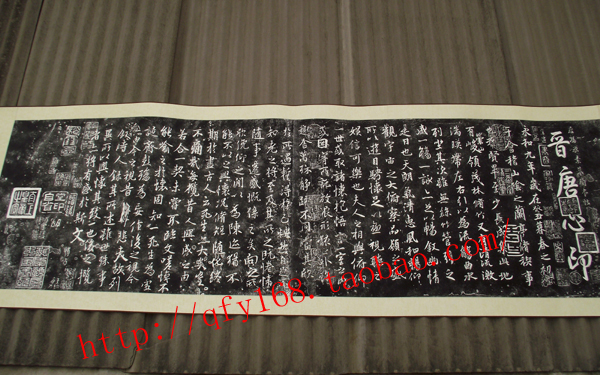 晉唐心印
永和九年歲在癸丑暮春之初
會稽山陰之蘭亭脩稧事
賢畢至少長咸集此地
有崇領茂林脩竹又有清流激
湍暎帶左右引以為流觴曲水
列坐其次雖無絲竹管弦之
盛一觴一詠亦足以暢敘幽情
是日也天朗氣清惠風和暢仰
觀宇宙之大俯察品類之盛
所以遊目騁懷足以極視聽之
娛信可樂也夫人之相與俯仰
一世或取諸懷抱悟言一室之內
或因寄所託放浪形骸之外雖
趣舍萬殊靜躁不同當其欣
於所遇暫得於己快然自足不
知老之將至及其所之既惓情
隨事遷感慨係之矣向之所
欣俛仰之間以為陳迹猶不
能不以之興懷況脩短隨化終
期於盡古人云死生亦大矣豈
不痛哉每攬昔人興感之由
若合一契未嘗不臨文嗟悼不
能喻之於懷固知一死生為虛
誕齊彭殤為妄作後之視今
亦由今之視昔悲夫故列
敘時人錄其所述雖世殊事
異所以興懷其致一也後之攬
者亦將有感於斯文
http://qfy168.taobao.com/